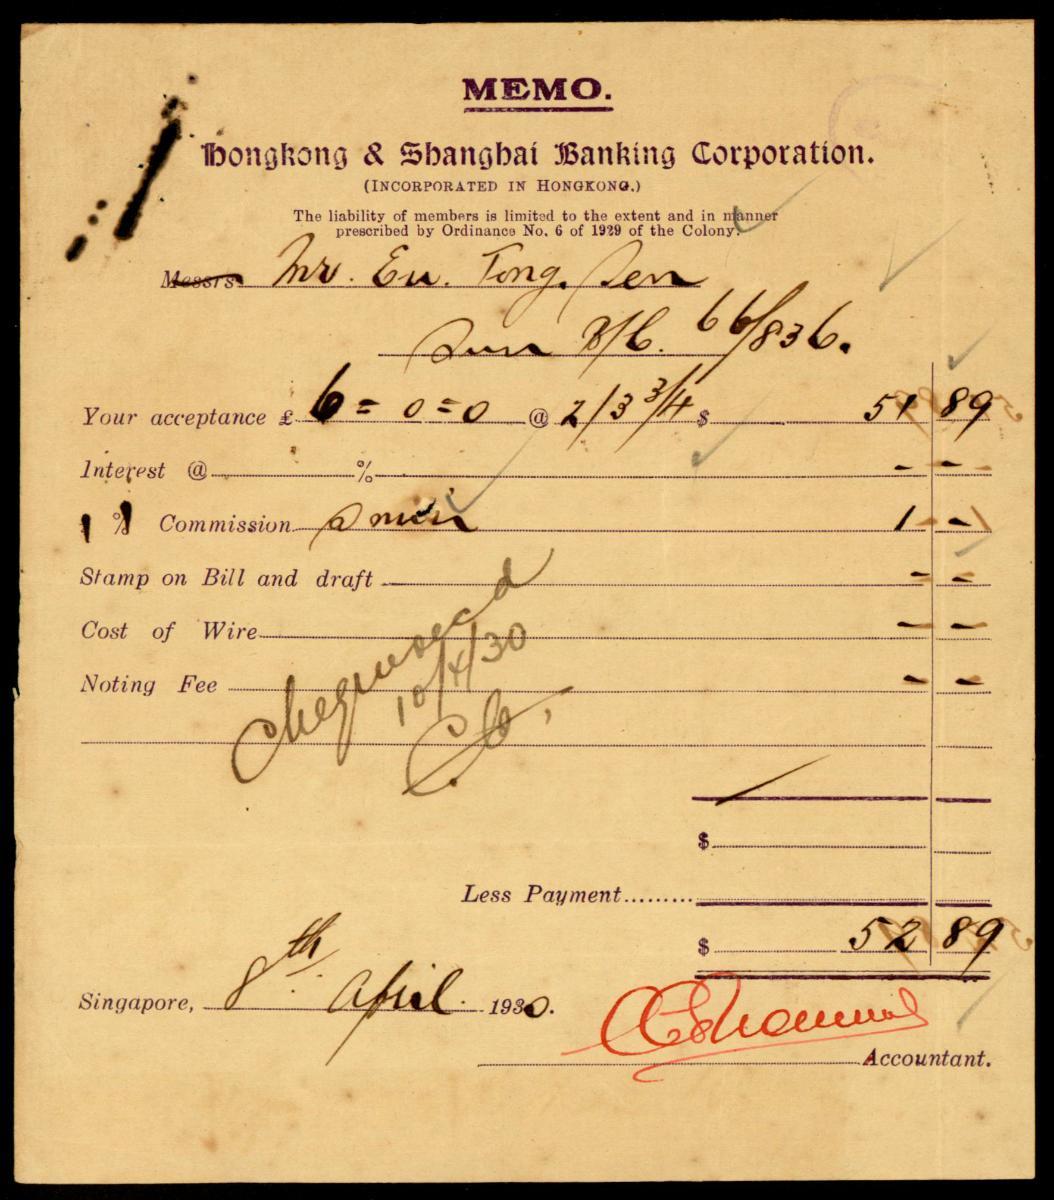 MEMO.
Hongkong & Shanghai Banking Corporation.
(INCORPORATED IN HONGKONG.)
The liability of members is limited to the extent and in manner
prescribed by Ordinance No. 6 of 1929 of the Colony.
Messrs Mr. Eu. Tong. Sen
B/C. 66/836.
Your acceptance £ 6=0=0 @ 2/3 3/4 $ 51 89
Interest @ % - -
1 % Commission 1 -
Stamp on Bill and draft - -
Cost of Wire - -
Noting Fee - -
10/4/30
$
Less Payment.........
$ 52 89
Singapore, 8th. April. 1930.
Accountant.